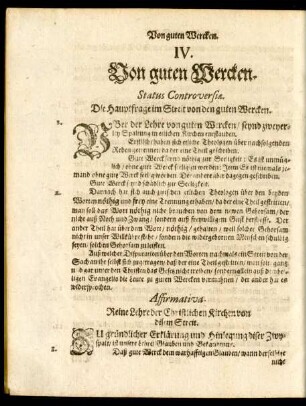 Von guten Wercken.
IV.
Von guten Wercken.
Status Controversiæ.
Die Hauptfrage im Streit von den guten Wercken.
1. UBer der Lehre von guten Wercken / seynd zweyer-
ley Spaltung in etlichen Kirchen entstanden.
Erstlich / haben sich etliche Theologen über nachfolgenden
Reden getrennet / da der eine Theil geschrieben.
Gute Werck seyn nöthig zur Seligkeit: Es ist unmüg-
lich / ohne gute Werck selig werden: Item Es ist niemals je-
mand ohne gute Werck selig worden. Der ander aber dagegen geschrieben.
Gute Werck seynd schädlich zur Seligkeit.
2. Darnach hat sich auch zwischen etlichen Theologen über den beyden
Worten nöthig und frey eine Trennung erhaben / da der eine Theil gestritten /
man soll das Wort nöthig nicht brauchen von dem newen Gehorsam / der
nicht auß Noth und Zwang / sondern auß freywilligem Geist herfliesse. Der
ander Theil hat über dem Wort / nöthig / gehalten / weil solcher Gehorsam
nicht in unser Willkühr stehe / sondern die widergebornen Menschen schuldig
seyen / solchen Gehorsam zu leisten.
Auß welcher Disputation über den Worten nachmals ein Streit von der
Sach an ihr selbst sich zugetragen / daß der eine Theil gestritten / man solte gantz
und gar unter den Christen das Gesetz nicht treiben / sondern allein auß dem heili-
gen Evangelio die Leute zu guten Wercken vermahnen / der ander hat es
widersprochen.
Affirmativa.
Reine Lehre der Christlichen Kirchen von
disem Streit.
ZU gründlicher Erklärung und Hinlegung diser Zwy-
spalt / ist unsere Lehre / Glauben und Bekanntnus.
1. Daß gute Werck dem warhafftigen Glauben / wann derselbige
nicht